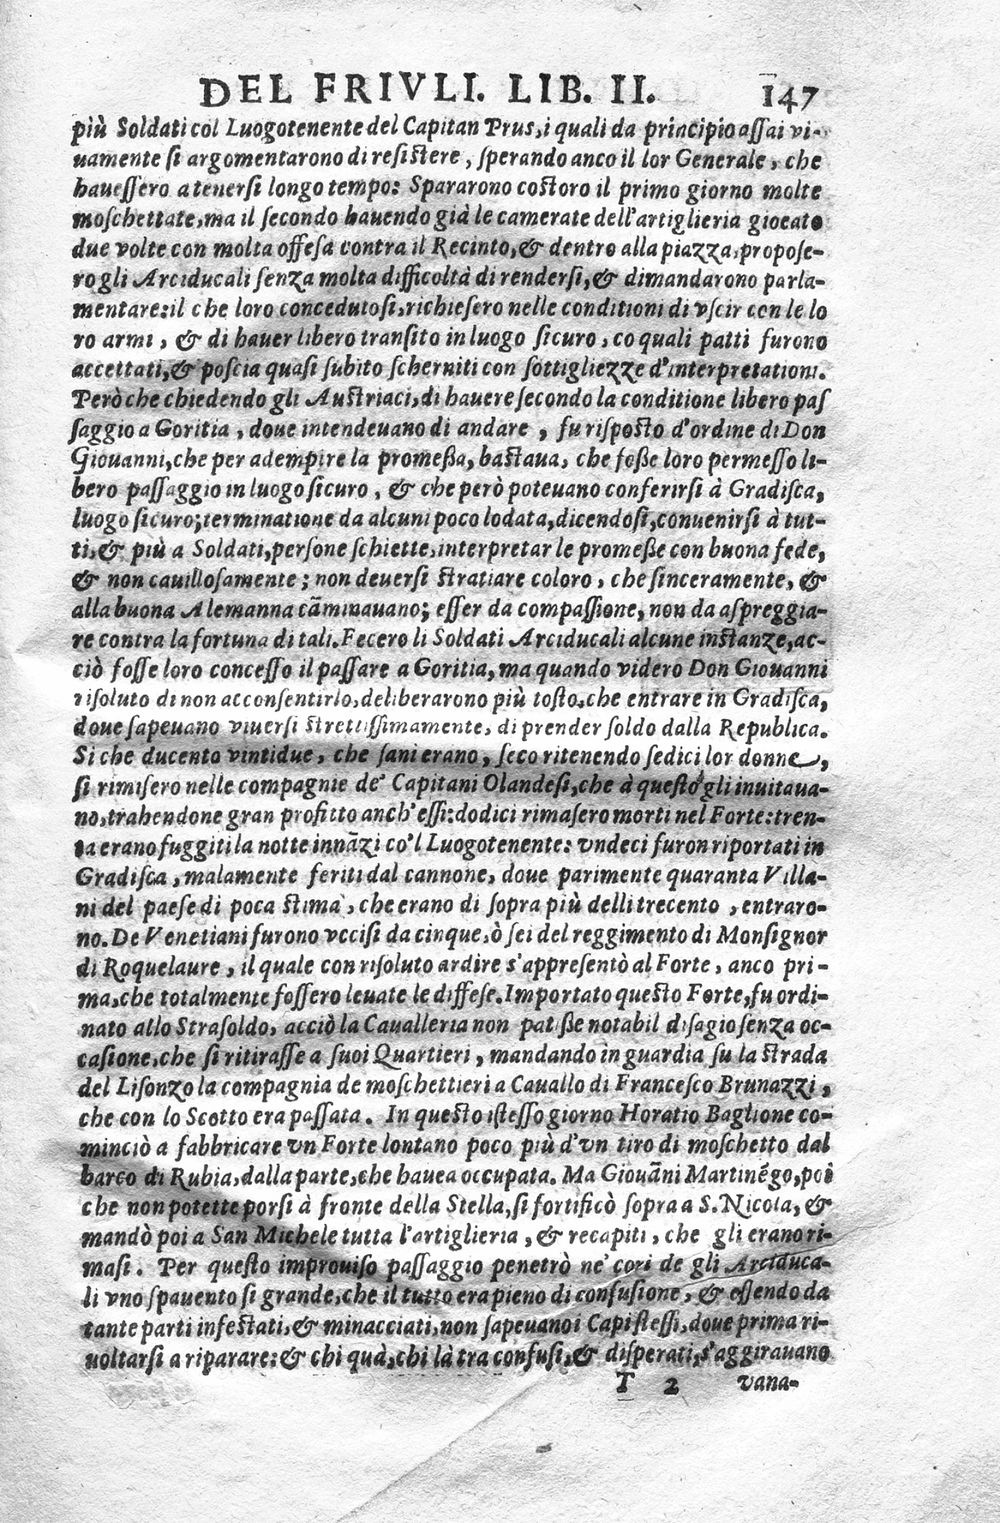 DEL FRIVLI. LIB. II. 147
più Soldati col Luogotenente del Capitan Prus, i quali da principio assai vi-
uamente si argomentarono di resistere, sperando anco il lor Generale, che
hauessero a tenersi longo tempo: Spararono costoro il primo giorno molte
moschettate, ma il secondo hauendo già le camerate dell'artiglieria giocato
due volte con molta offesa contra il Recinto, & dentro alla piazza, propose-
ro gli Arciducali senza molta difficoltà di rendersi, & dimandarono parla-
mentare: il che loro concedutosi, richiesero nelle conditioni di vscir con le lo
ro armi, & di hauer libero transito in luogo sicuro, co quali patti furono
accettati, & poscia quasi subito scherniti con sottigliezze d'interpretationi.
Però che chiedendo gli Austriaci, di hauere secondo la conditione libero pas
saggio a Goritia, doue intendeuano di andare, fu risposto d'ordine di Don
Giouanni, che per adempire la promessa, bastaua, che fosse loro permesso li-
bero passaggio in luogo sicuro, & che però poteuano conferirsi à Gradisca,
luogo sicuro; terminatione da alcuni poco lodata, dicendosi, conuenirsi à tut-
ti, & più a Soldati, persone schiette, interpretar le promesse con buona fede,
& non cauillosamente; non deuersi stratiare coloro, che sinceramente, &
alla buona Alemanna cãminauano; esser da compassione, non da aspreggia-
re contra la fortuna di tali. Fecero li Soldati Arciducali alcune instanze, ac-
ciò fosse loro concesso il passare a Goritia, ma quando videro Don Giouanni
risoluto di non acconsentirlo, deliberarono più tosto, che entrare in Gradisca,
doue sapeuano viuersi strettissimamente, di prender soldo dalla Republica.
Si che ducento vintidue, che sani erano, seco ritenendo sedici lor donne,
si rimisero nelle compagnie de' Capitani Olandesi, che à questo gli inuitaua-
no, trahendone gran profitto anch'essi: dodici rimasero morti nel Forte: tren-
ta erano fuggiti la notte innãzi co'l Luogotenente: vndeci furon riportati in
Gradisca, malamente feriti dal cannone, doue parimente quaranta Villa-
ni del paese di poca stima, che erano di sopra più delli trecento, entraro-
no. De Venetiani furono vccisi da cinque, ò sei del reggimento di Monsignor
di Roquelaure, il quale con risoluto ardire s'appresentò al Forte, anco pri-
ma, che totalmente fossero leuate le diffese. Importato questo Forte, fu ordi-
nato allo Strasoldo, acciò la Caualleria non patisse notabil disagio senza oc-
casione, che si ritirasse a suoi Quartieri, mandando in guardia su la strada
del Lisonzo la compagnia de moschettieri a Cauallo di Francesco Brunazzi,
che con lo Scotto era passata. In questo istesso giorno Horatio Baglione co-
minciò a fabbricare vn Forte lontano poco più d'vn tiro di moschetto dal
barco di Rubia, dalla parte, che hauea occupata. Ma Giouãni Martinẽgo, poi
che non potette porsi à fronte della Stella, si fortificò sopra a S. Nicola, &
mandò poi a San Michele tutta l'artiglieria, & recapiti, che gli erano ri-
masi. Per questo improuiso passaggio penetrò ne' cori de gli Arciduca-
li vno spauento sì grande, che il tutto era pieno di confusione, & essendo da
tante parti infestati, & minacciati, non sapeuano i Capi stessi, doue prima ri-
uoltarsi a riparare: & chi quà, chi là tra confusi, & disperati, s'aggirauano
T 2 vana-